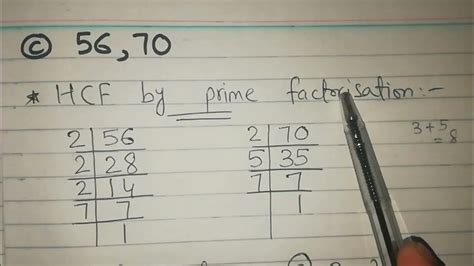 ⓒ 56,70
* HCF by prime factorisation:-
2 56 2 70
2 28 5 35
2 14 7 7
7 7 1
1
3+5
=8